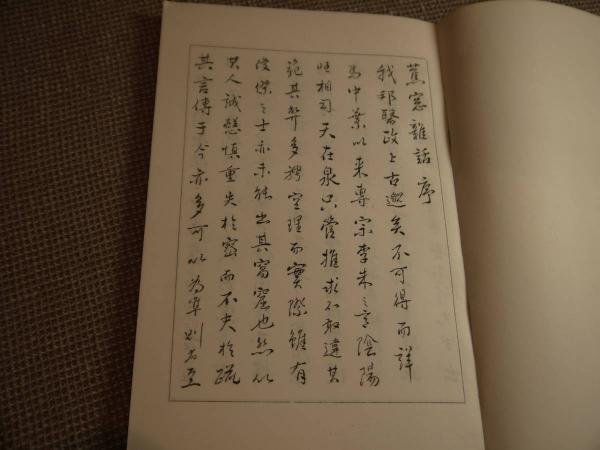 蕉窓雜話序
我邦醫政上古邈矣不可得而詳
焉中葉以来專宗李朱之言陰陽
旺相司天在泉只管推求不敢違其
範其弊多騖空理而實際雖有
俊傑之士亦未能出其窠窟也然以
其人誠愨慎重失於密而不失於疏
其言傳于今亦多可以為準則者至